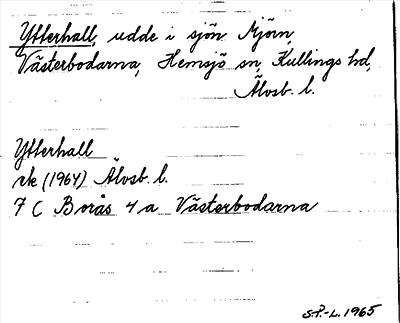 Ytterhall, udde i sjön Mjörn,
Västerbodarna, Hemsjö sn, Kullings hd,
Älvsb. l.
Ytterhall
ek (1964) Älvsb. l.
7 C Borås 4 a Västerbodarna
S.P.-L. 1965